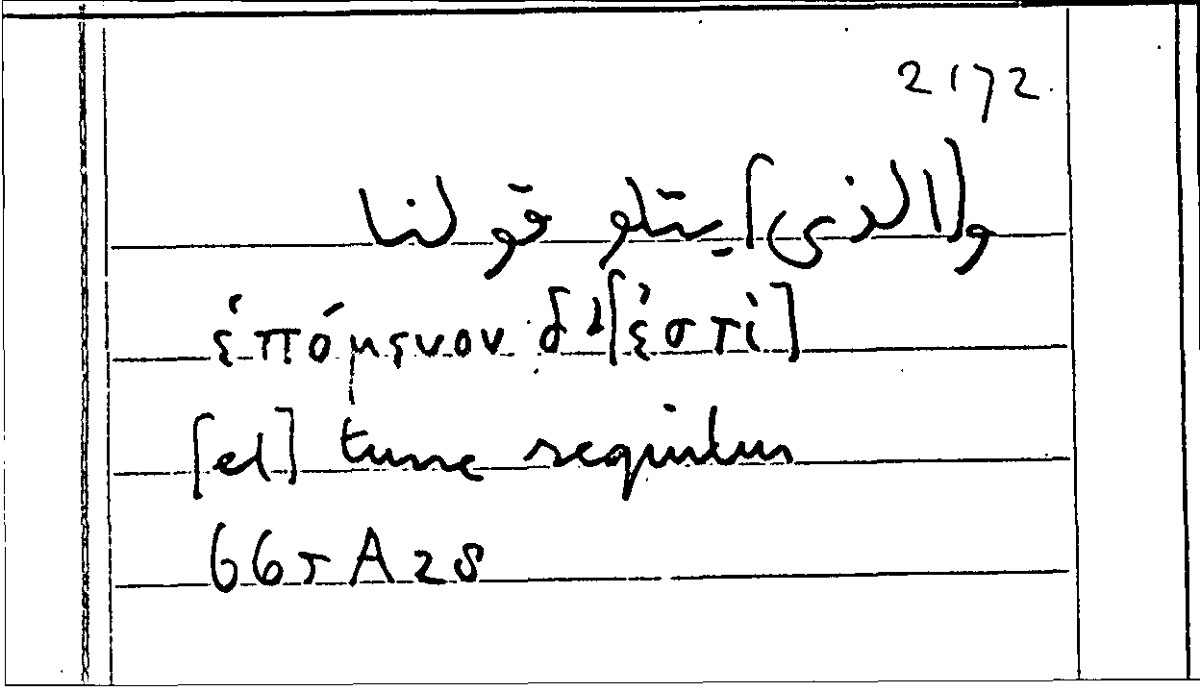 2172.
و[الذى] يتلو قولنا
ἑπόμενον δ' [ἐστὶ]
[et] tunc sequitur
665 A 28